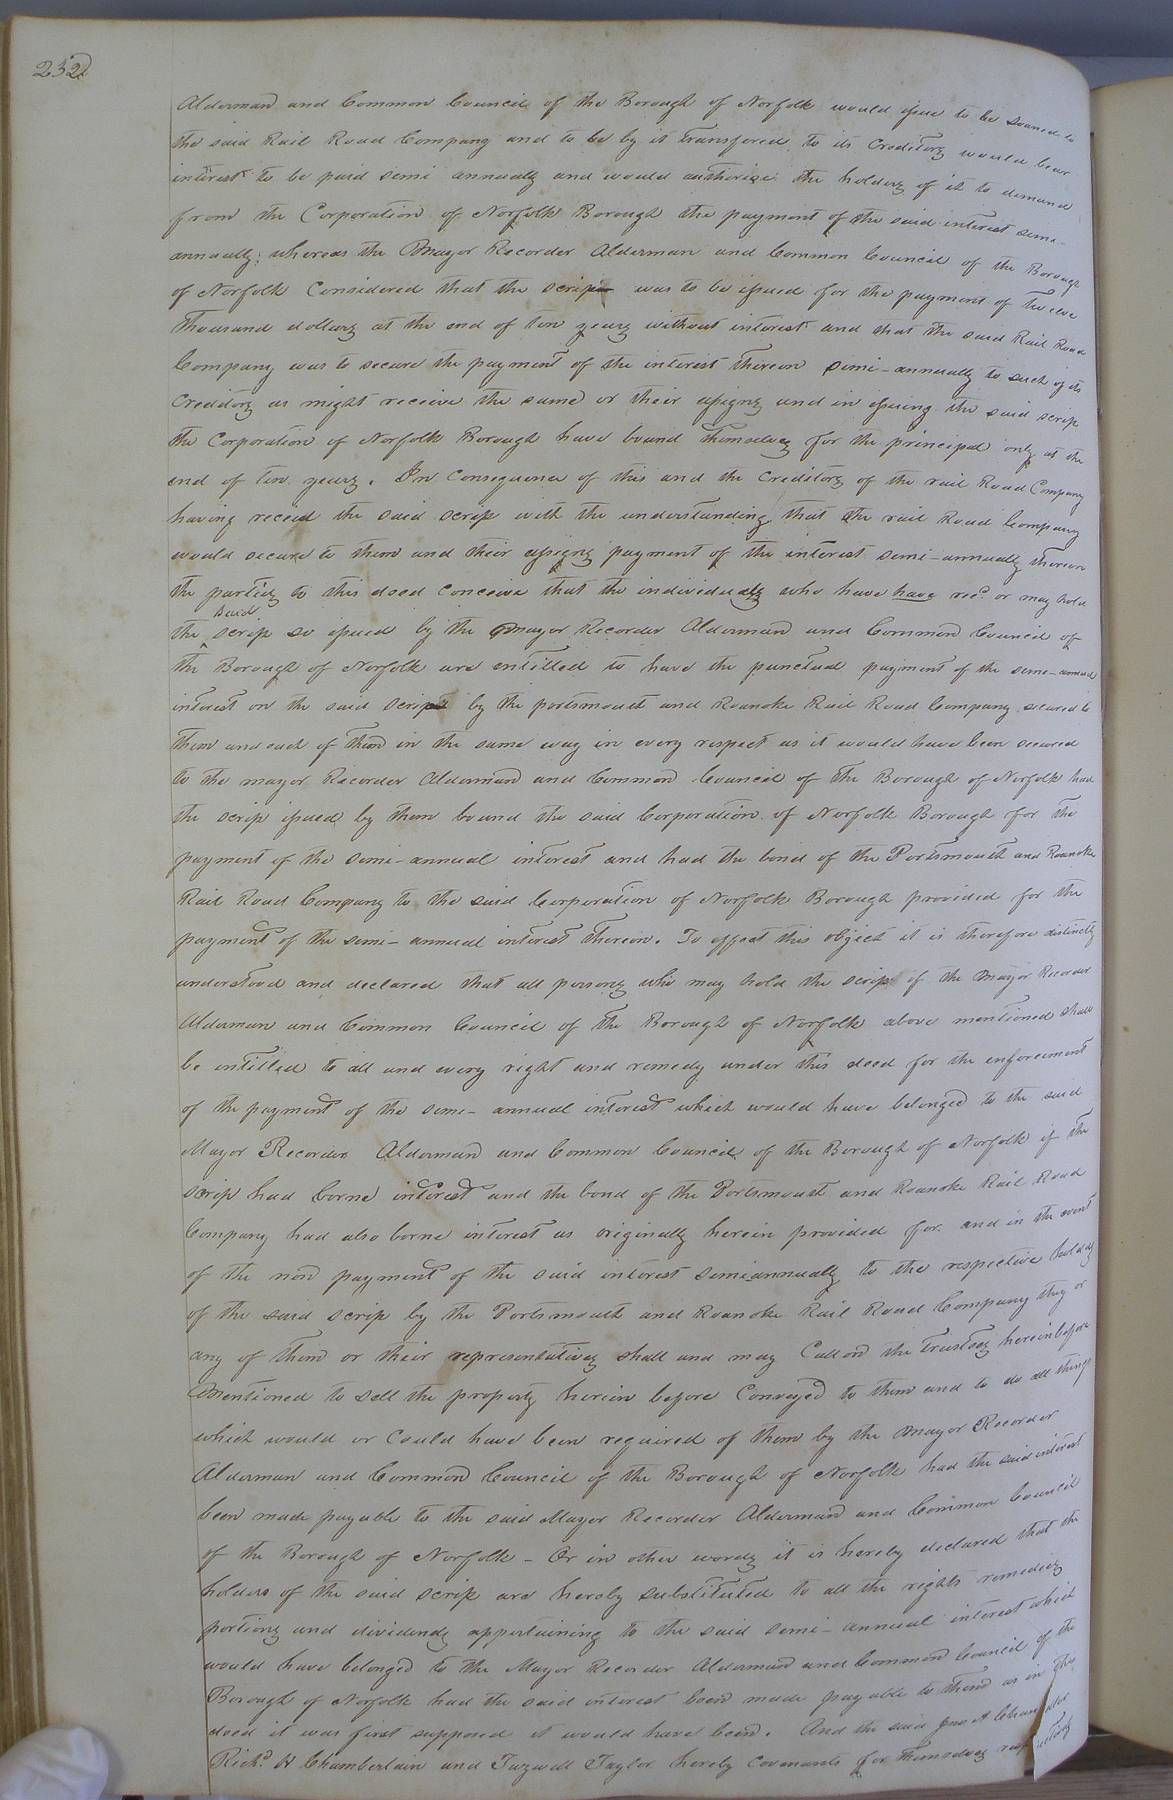 232
Alderman and Common Council of the Borough of Norfolk would issue to be loaned to
the said Rail Road Company and to be by it transfered to its Creditors would bear
interest to be paid semi annually and would authorise the holders of it to demand
from the Corporation of Norfolk Borough the payment of the said interest semi-
annually; whereas the Mayor Recorder Alderman and Common Council of the Borough
of Norfolk Considered that the scrip was to be issued for the payment of Twelve
Thousand dollars at the end of ten years without interest and that the said Rail Road
Company was to secure the payment of the interest thereon semi-annually to such of its
Creditors as might receive the same or their assigns and in issuing the said scrip
the Corporation of Norfolk Borough have bound themselves for the principal only at the
end of ten years. In Consequence of this and the Creditors of the rail Road Company
having received the said scrip with the understanding that the rail Road Company
would secure to them and their assigns payment of the interest semi-annually thereon
the parties to this deed conceive that the individuals who have have recd. or may hold
said
the scrip so issued by the Mayor Recorder Alderman and Common Council of
the Borough of Norfolk are entitled to have the punctual payment of the semi-annual
interest on the said scrip by the portsmouth and Roanoke Rail Road Company secured to
them and each of them in the same way in every respect as it would have been secured
to the mayor Recorder Alderman and Common Council of the Borough of Norfolk had
the scrip issued by them bound the said Corporation of Norfolk Borough for the
payment of the semi-annual interest and had the bond of the Portsmouth and Roanoke
Rail Road Company to the said Corporation of Norfolk Borough provided for the
payment of the semi-annual interest thereon. To effect this object it is therefore distinctly
understood and declared that all persons who may hold the scrip of the Mayor Recorder
Alderman and Common Council of the Borough of Norfolk above mentioned shall
be entitled to all and every right and remedy under this deed for the enforcement
of the payment of the semi-annual interest which would have belonged to the said
Mayor Recorder Alderman and Common Council of the Borough of Norfolk if the
scrip had borne interest and the bond of the Portsmouth and Roanoke Rail Road
Company had also borne interest as originally herein provided for and in the event
of the non payment of the said interest semiannually to the respective holders
of the said scrip by the Portsmouth and Roanoke Rail Road Company they or
any of them or their representatives shall and may Call on the Trustees hereinbefore
mentioned to sell the property herein before Conveyed to them and to do all things
which would or Could have been required of them by the Mayor Recorder
Alderman and Common Council of the Borough of Norfolk had the said interest
been made payable to the said Mayor Recorder Alderman and Common Council
of the Borough of Norfolk - Or in other words it is hereby declared that the
holders of the said scrip are hereby substituted to all the rights remedies
portions and dividends appertaining to the said semi-annual interest which
would have belonged to the Mayor Recorder Alderman and Common Council of the
Borough of Norfolk had the said interest been made payable to them as in this
deed it was first supposed it would have been. And the said Jno A Chandler
Richd. H Chamberlain and Tazwell Taylor hereby covenants for themselves respectively